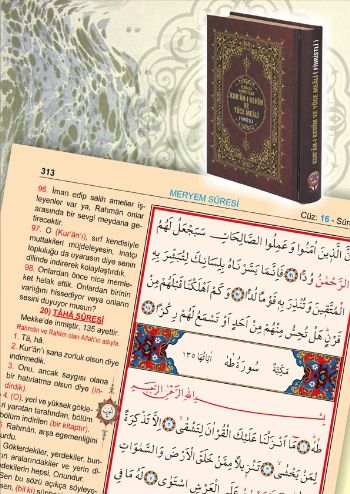 KUR'AN-I KERİM
VE
YÜCE MEALİ
KUR'AN-I KERİM VE YÜCE MEALİ (FİHRİSTLİ)
313
MERYEM SÛRESİ
Cüz: 16 - Sûre
96. İman edip salih ameller iş-
leyenler var ya, Rahmân onlar
arasında bir sevgi meydana ge-
tirecektir.
97. O (Kur'ân'ı), sırf kendisiyle
muttakileri müjdeleyesin, inatçı
topluluğu da uyarasın diye senin
dilinde indirerek kolaylaştırdık.
98. Onlardan önce nice memle-
ket halkı helak ettik. Onlardan birinin
varlığını hissediyor veya onların
sesini duyuyor musun?
20) TÂHÂ SÛRESİ
Mekke'de inmiştir, 135 âyettir.
Rahmân ve Rahîm olan Allah'ın adıyla.
1. Tâ, hâ.
2. Kur'ân'ı sana zorluk olsun diye
indirmedik.
3. Onu, ancak saygısı olana
bir hatırlatma olsun diye (in-
dirdik).
4. (O), yeri ve yüksek gökle-
ri yaratan tarafından, bölüm
bölüm indirilen (bir kitaptır).
Rahmân, arşa egemenliğini
kurdu.
Göklerdekiler, yerdekiler, bun-
ların aralarındakiler ve yerin di-
bindekilerin hepsi, Onundur.
Sen bu sözü açıkça söylesen
اِنَّ الَّذِينَ اٰمَنُوا وَعَمِلُوا الصَّالِحَاتِ سَيَجْعَلُ لَهُمُ
الرَّحْمٰنُ وُدًّا ﴿٩٦﴾ فَاِنَّمَا يَسَّرْنَاهُ بِلِسَانِكَ لِتُبَشِّرَ بِهِ
الْمُتَّقِينَ وَتُنْذِرَ بِهِ قَوْمًا لُدًّا ﴿٩٧﴾ وَكَمْ اَهْلَكْنَا قَبْلَهُمْ مِنْ
قَرْنٍ هَلْ تُحِسُّ مِنْهُمْ مِنْ اَحَدٍ اَوْ تَسْمَعُ لَهُمْ رِكْزًا ﴿٩٨﴾
مَكِّيَّةٌ سُورَةُ طٰهٰ اٰيَاتُهَا ١٣٥
بِسْمِ اللهِ الرَّحْمٰنِ الرَّحِيمِ
طٰهٰ ﴿١﴾ مَا اَنْزَلْنَا عَلَيْكَ الْقُرْاٰنَ لِتَشْقٰى ﴿٢﴾ اِلَّا تَذْكِرَةً
لِمَنْ يَخْشٰى ﴿٣﴾ تَنْزِيلًا مِمَّنْ خَلَقَ الْاَرْضَ وَالسَّمٰوَاتِ
عَلَى الْعَرْشِ اسْتَوٰى ﴿٥﴾ لَهُ مَا فِي